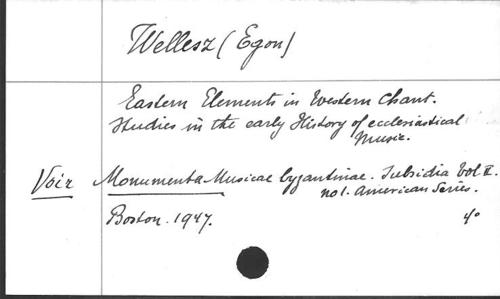 Wellesz (Egon)
Eastern Elements in Western Chant.
Studies in the early History of ecclesiastical
Music.
Voir Monumenta Musicae byzantinae. Subsidia Vol II.
no 1. American Series.
Boston. 1947. 4°